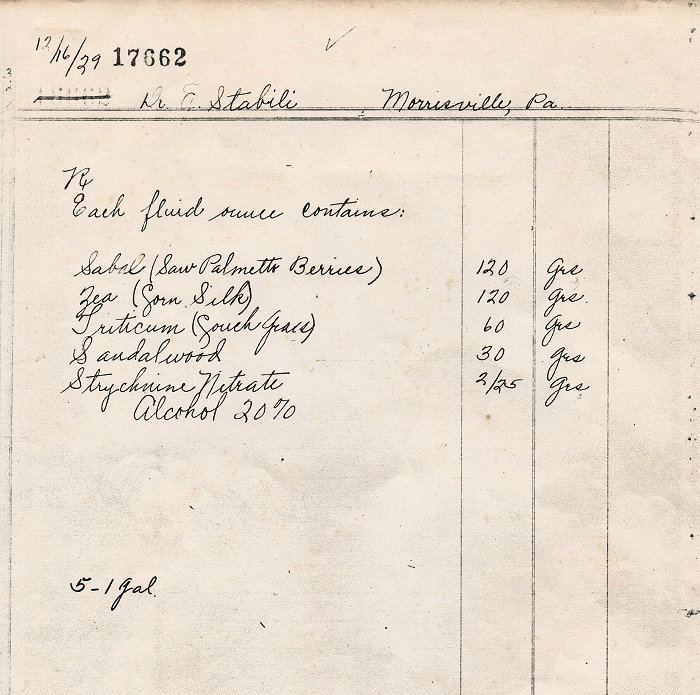 12/16/29 17662
Dr. A. Stabili Morrisville, Pa.
Rx
Each fluid ounce contains:
Sabal (Saw Palmetto Berries) 120 Grs
Zea (Corn Silk) 120 Grs.
Triticum (Couch Grass) 60 Grs
Sandalwood 30 Grs
Strychnine Nitrate 2/25 Grs
Alcohol 20%
5-1 gal.